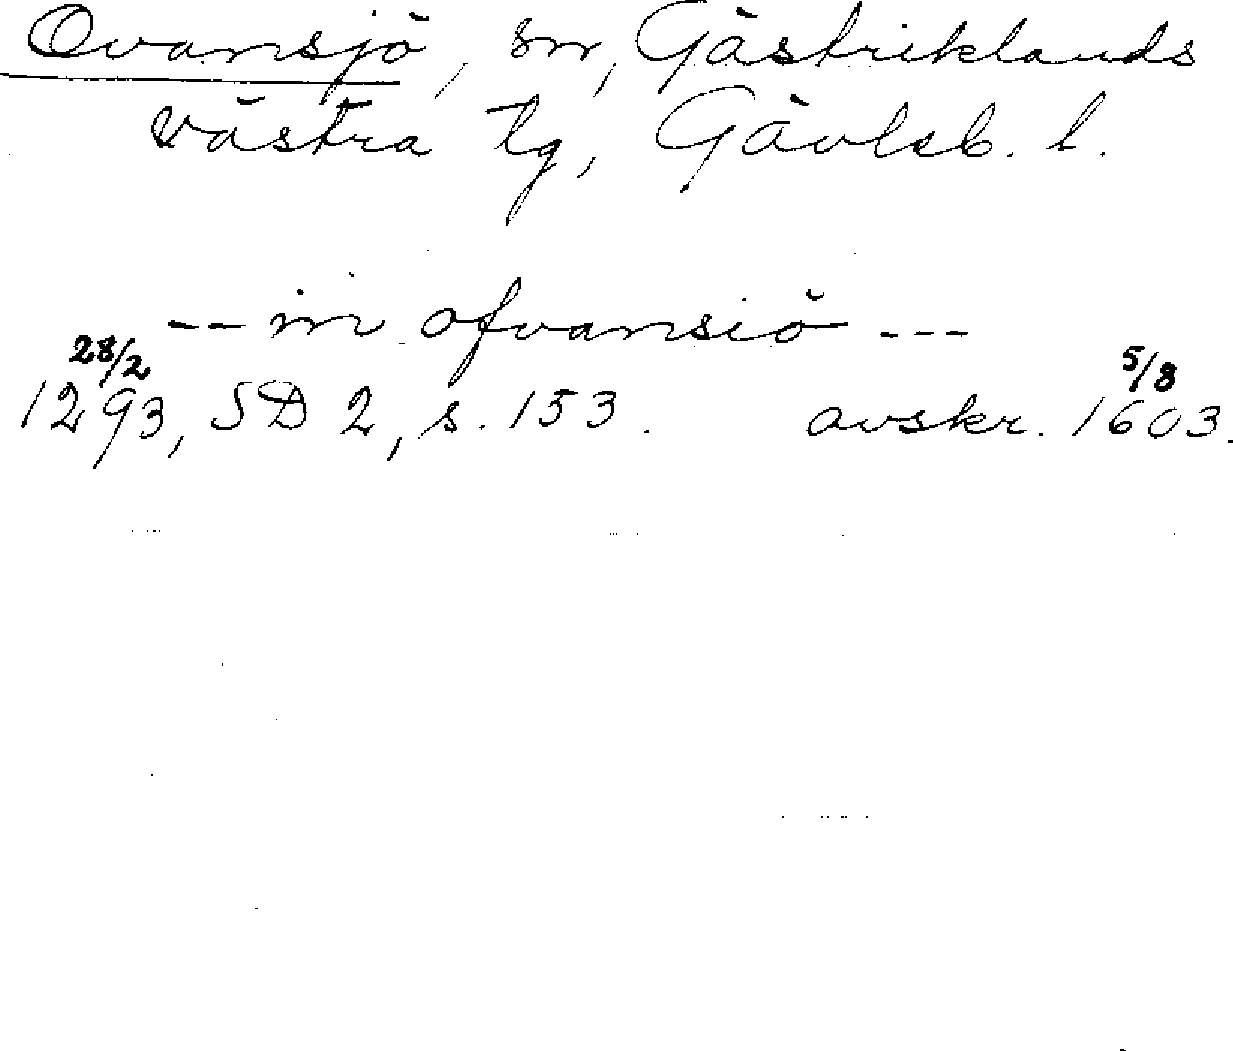 Ovansjö, sn, Gästriklands
västra tg, Gävleb. l.
-- in ofvansiö ---
28/2 5/8
1293, SD 2, s. 153. avskr. 1603.